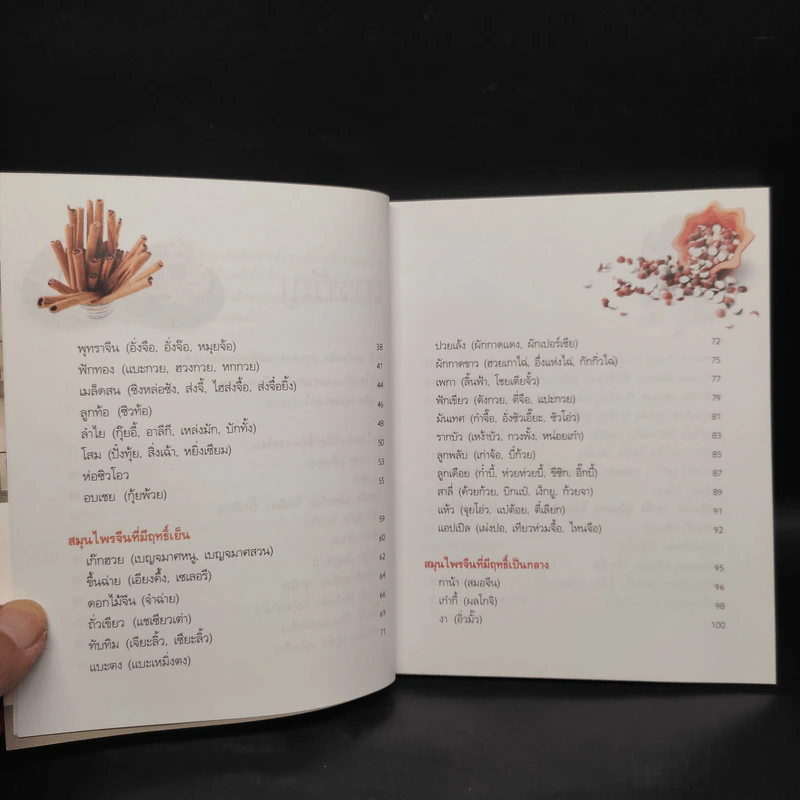 พุทราจีน (อั่งจือ, อั่งจ๊อ, หมุยจ้อ) 38
ฟักทอง (แบะกวย, ฮวงกวย, หกกวย) 41
เมล็ดสน (ซิงหล่อซัง, ส่งจี้, ไฮส่งจื้อ, ส่งจื่อยิ้ง) 44
ลูกท้อ (ชิวท้อ) 46
ลำไย (กุ๊ยอี้, อาลีกี, เหล่งมัก, บักทั้ง) 48
โสม (ปั่งทุ้ย, สิ่งเฉ้า, หยิ่งเซียม) 50
ห่อซิวโอว 53
อบเชย (กุ้ยพ้วย) 55
สมุนไพรจีนที่มีฤทธิ์เย็น 59
เก๊กฮวย (เบญจมาศหนู, เบญจมาศสวน) 60
ขึ้นฉ่าย (เอียงคึ้ง, เซเลอรี) 62
ดอกไม้จีน (จำฉ่าย) 64
ถั่วเขียว (แชเซียวเต่า) 66
ทับทิม (เจียะลิ้ว, เซียะลิ้ว) 69
แบะตง (แบะเหมิ่งตง) 71
ปวยเล้ง (ผักกาดแดง, ผักเปอร์เซีย) 72
ผักกาดขาว (ฮวยเกาไฉ่, อึ่งแห่งไฉ่, กักกิ่วไฉ่) 75
เพกา (ลิ้นฟ้า, โชยเตียจั้ว) 77
ฟักเขียว (ตังกวย, ตี่จือ, แปะกวย) 79
มันเทศ (กำจื๊อ, อั่งชัวเอี๊ยะ, ชัวโอ่ว) 81
รากบัว (เหง้าบัว, กวงพั้ง, หน่อยเก๋า) 83
ลูกพลับ (เก่าจ้อ, บี๋ก้วย) 85
ลูกเดือย (ก๋ำบี้, ห่วยห่วยบี้, ซีซิก, อิ๊กบี้) 87
สาลี่ (ค้วยก้วย, บิกแป๋, เง็กยู, ก้วยจา) 89
แห้ว (จุยโอ่ว, แบ๋ต้อย, ตี่เลียก) 91
แอปเปิล (เผ่งปอ, เทียวห่วมจื้อ, ไหนจือ) 92
สมุนไพรจีนที่มีฤทธิ์เป็นกลาง 95
กาน้า (สมอจีน) 96
เก๋ากี้ (ผลโกจิ) 98
งา (อิ่วมั้ว) 100